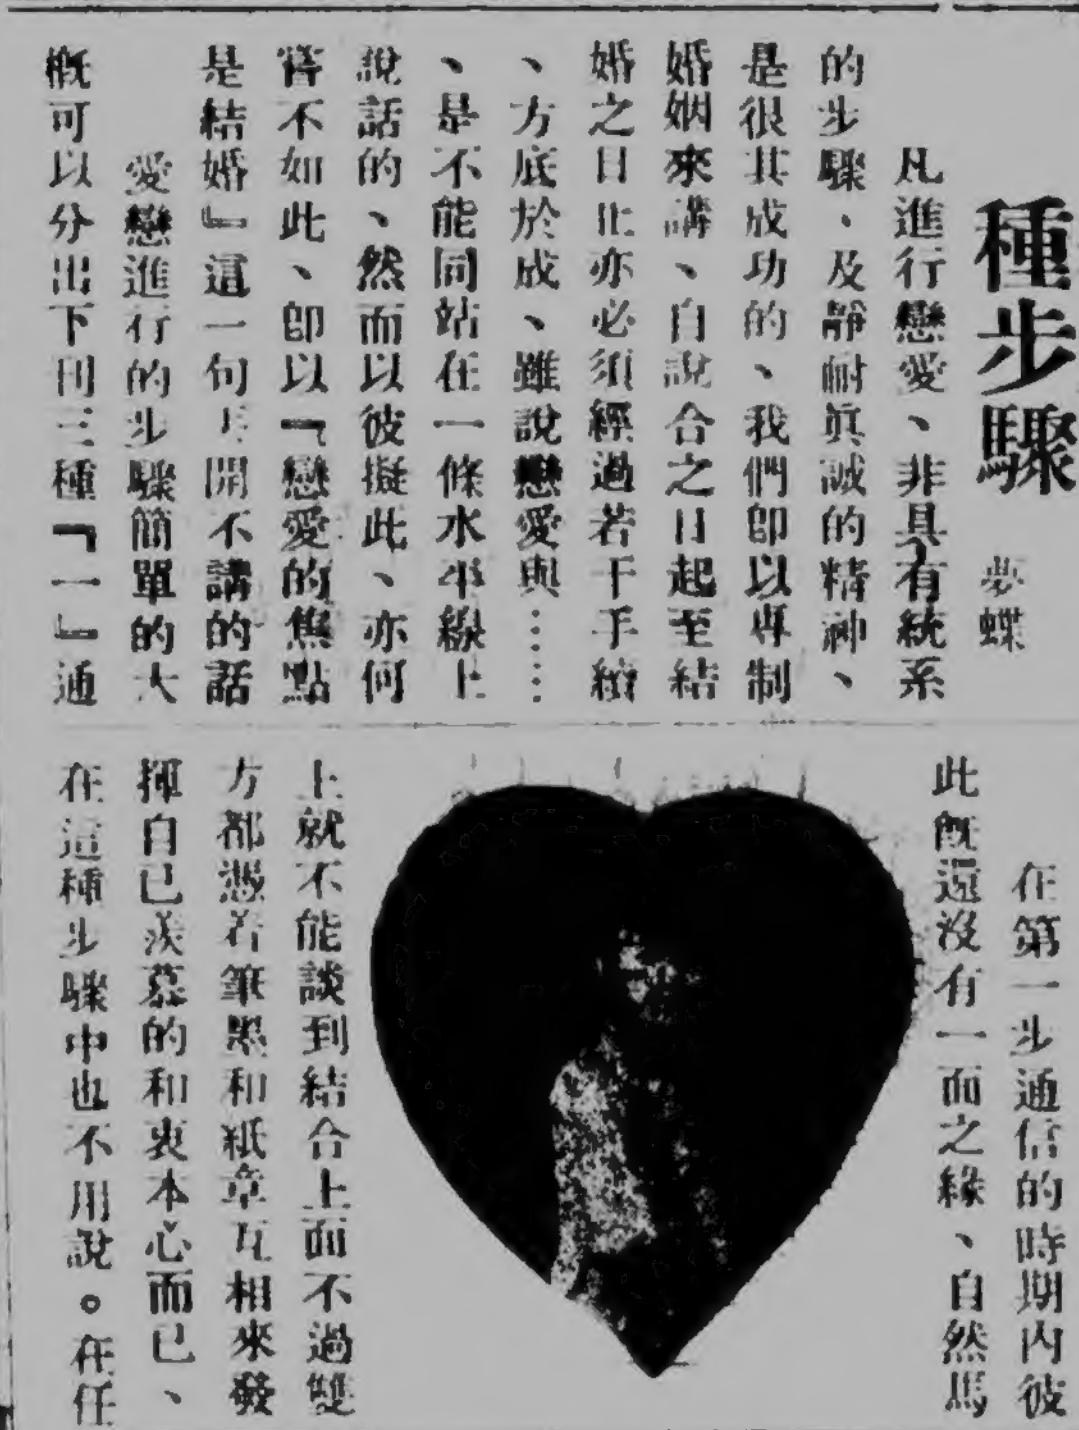 種步驟
夢蝶
凡進行戀愛、非具有統系
的步驟、及靜耐眞誠的精神、
是很其成功的、我們卽以專制
婚姻來講、自說合之日起至結
婚之日止亦必須經過若干手續
、方底於成、雖說戀愛與……
、是不能同站在一條水平線上
說話的、然而以彼擬此、亦何
嘗不如此、卽以『戀愛的焦點
是結婚』這一句開不講的話
愛戀進行的步驟簡單的大
槪可以分出下列三種『一』通
在第一步通信的時期內彼
此旣還沒有一面之緣、自然馬
上就不能談到結合上面不過雙
方都憑着筆墨和紙章互相來發
揮自己羨慕的和衷本心而已、
在這種步驟中也不用說。在任